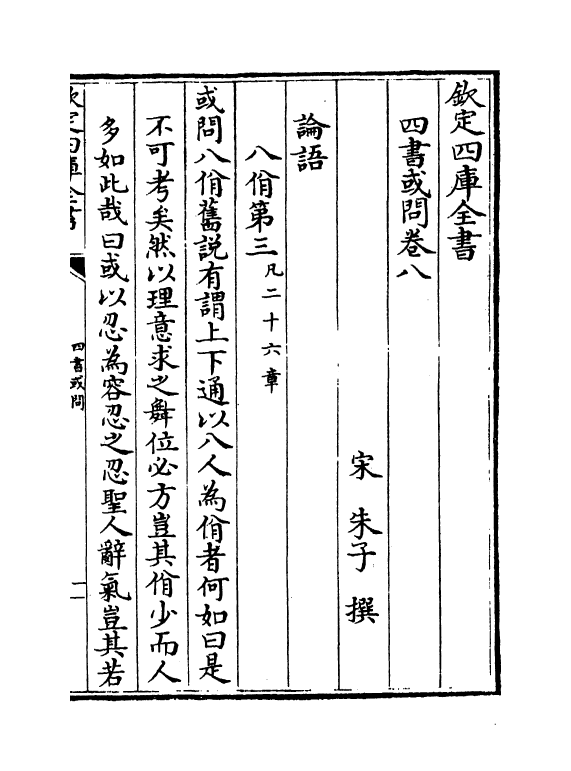 欽定四庫全書
四書或問卷八
宋 朱子 撰
論語
八佾第三凡二十六章
或問八佾舊説有謂上下通以八人為佾者何如曰是
不可考矣然以理意求之舞位必方豈其佾少而人
多如此哉曰或以忍為容忍之忍聖人辭氣豈其若
欽定四庫全書
四書或問